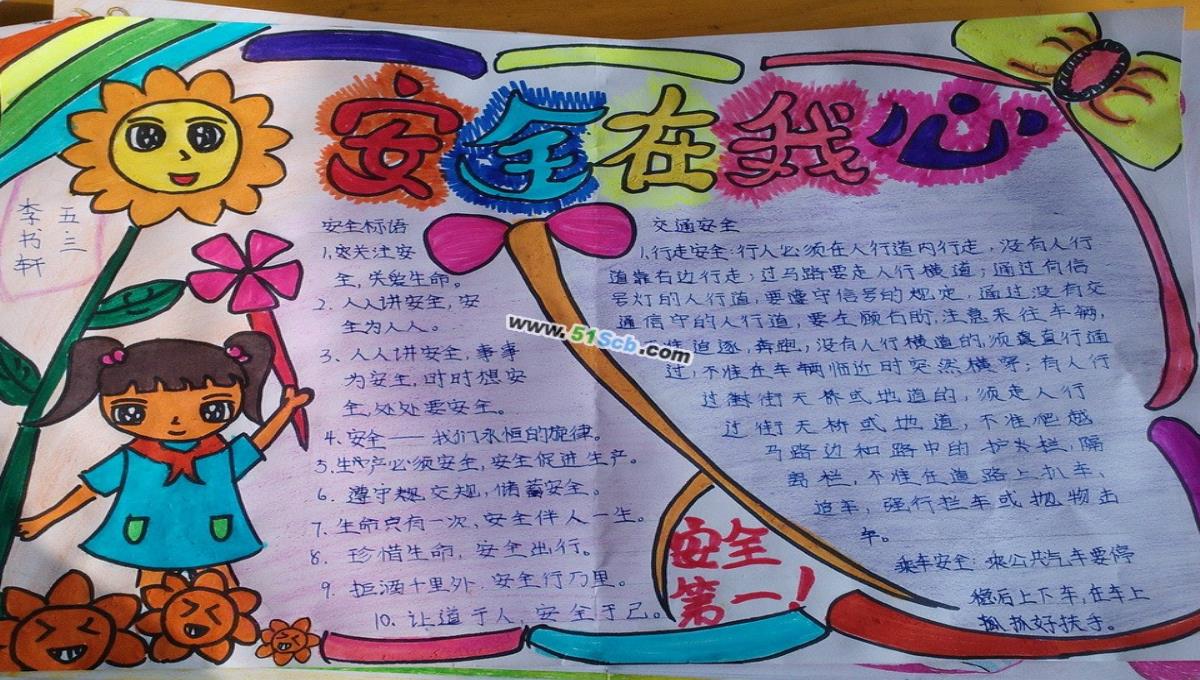 安全在我心
五.三
李书轩
安全标语
1,关注安
全,关爱生命。
2. 人人讲安全,安
全为人人。
3、人人讲安全,事事
为安全,时时想安
全,处处要安全。
4.安全——我们永恒的旋律。
5.生产必须安全,安全促进生产。
6. 遵守规交规,储蓄安全。
7. 生命只有一次,安全伴人一生。
8. 珍惜生命,安全出行。
9. 拒酒十里外.安全行万里。
10. 让道于人,安全于己。
交通安全
1.行走安全:行人必须在人行道内行走,没有人行
道靠右边行走;过马路要走人行横道;通过有信
号灯的人行道,要遵守信号的规定,通过没有交
通信守的人行道,要左顾右盼,注意来往车辆,
准追逐,奔跑,没有人行横道的,须直行通
过,不准在车辆临近时突然横穿;有人行
过街天桥或地道的,须走人行
过街天桥或地道,不准爬越
马路边和路中的护栏,隔
离栏,不准在道路上扒车、
追车,强行拦车或抛物击
车。
乘车安全:乘公共汽车要停
稳后上下车,在车上
抓好扶手。
安全
第一!
www.51Scb.com